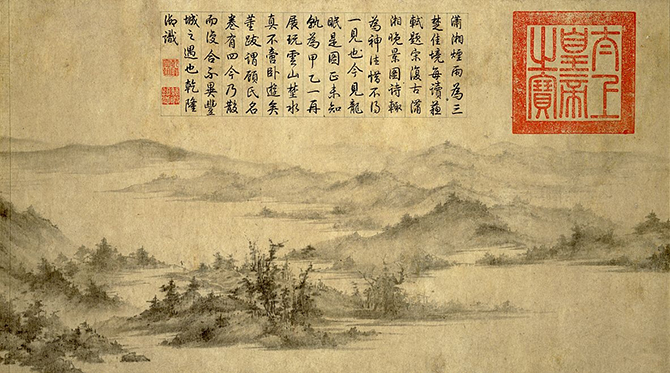 太上
皇帝
之寶
瀟湘煙雨為三
楚佳境每讀蘇
軾題宋復古瀟
湘晚景圖詩輙
為神往惜不得
一見也今見龍
眠是圖正未知
孰為甲乙一再
展玩雲山楚水
真不啻臥遊矣
董跋謂顧氏名
卷有四今乃散
而復合不異豐
城之遇也乾隆
御識